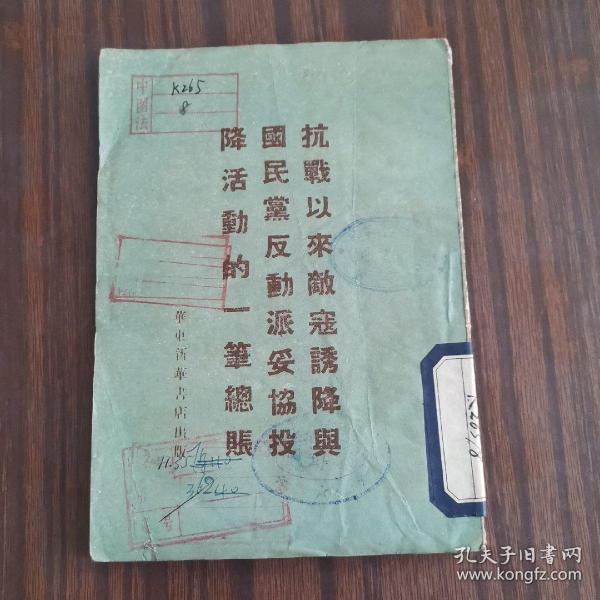 中圖法
K265
8
抗戰以來敵寇誘降與
國民黨反動派妥協投
降活動的一筆總賬
華東新華書店出版
36240
K265/8
孔夫子旧书网
www.kongfz.com